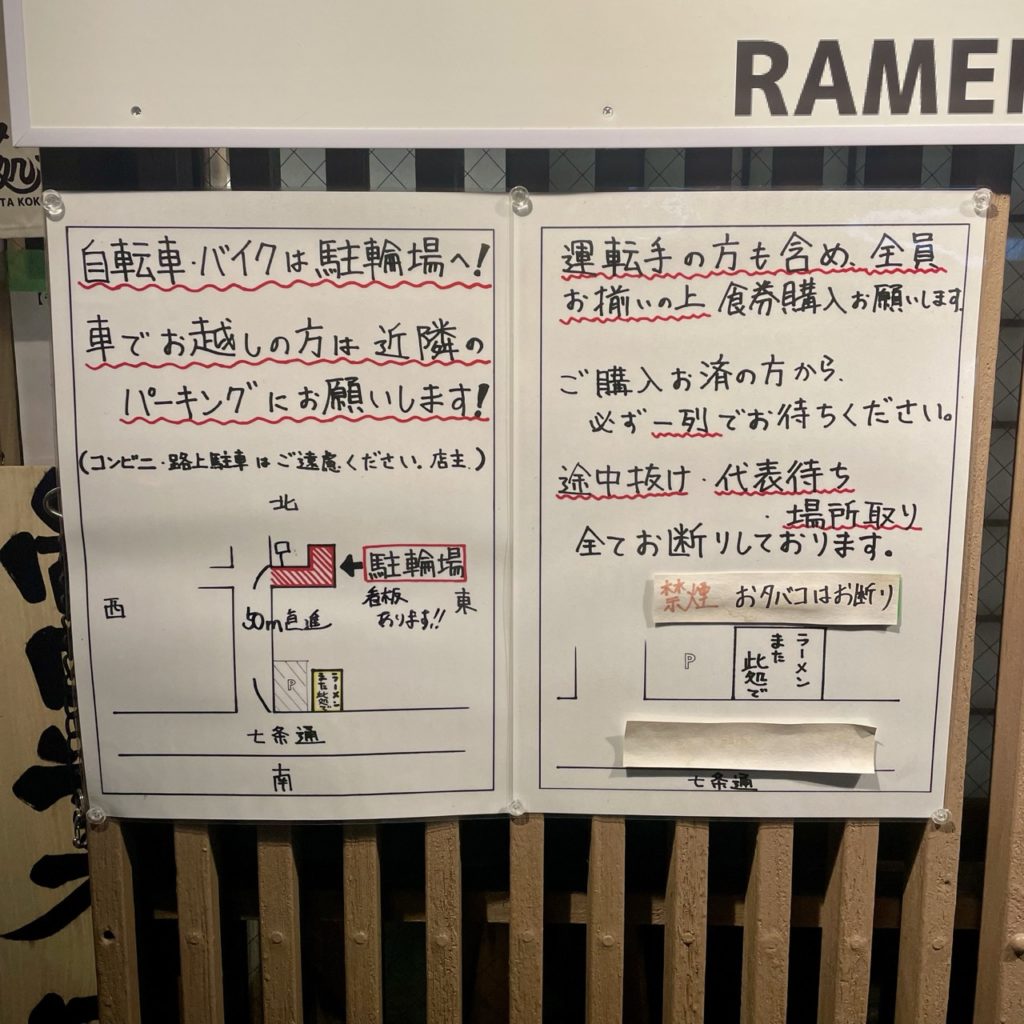 RAMEN
処
TA KOK
自転車・バイクは駐輪場へ!
車でお越しの方は近隣の
パーキングにお願いします!
(コンビニ・路上駐車はご遠慮ください。店主)
北
駐輪場
看板
あります!!
西
東
50m直進
P
ラーメン
また此処で
七条通
南
運転手の方も含め、全員
お揃いの上 食券購入お願いします。
ご購入お済の方から、
必ず一列でお待ちください。
途中抜け・代表待ち
・場所取り
全てお断りしております。
禁煙 おタバコはお断り
P
ラーメン
また
此処で
七条通